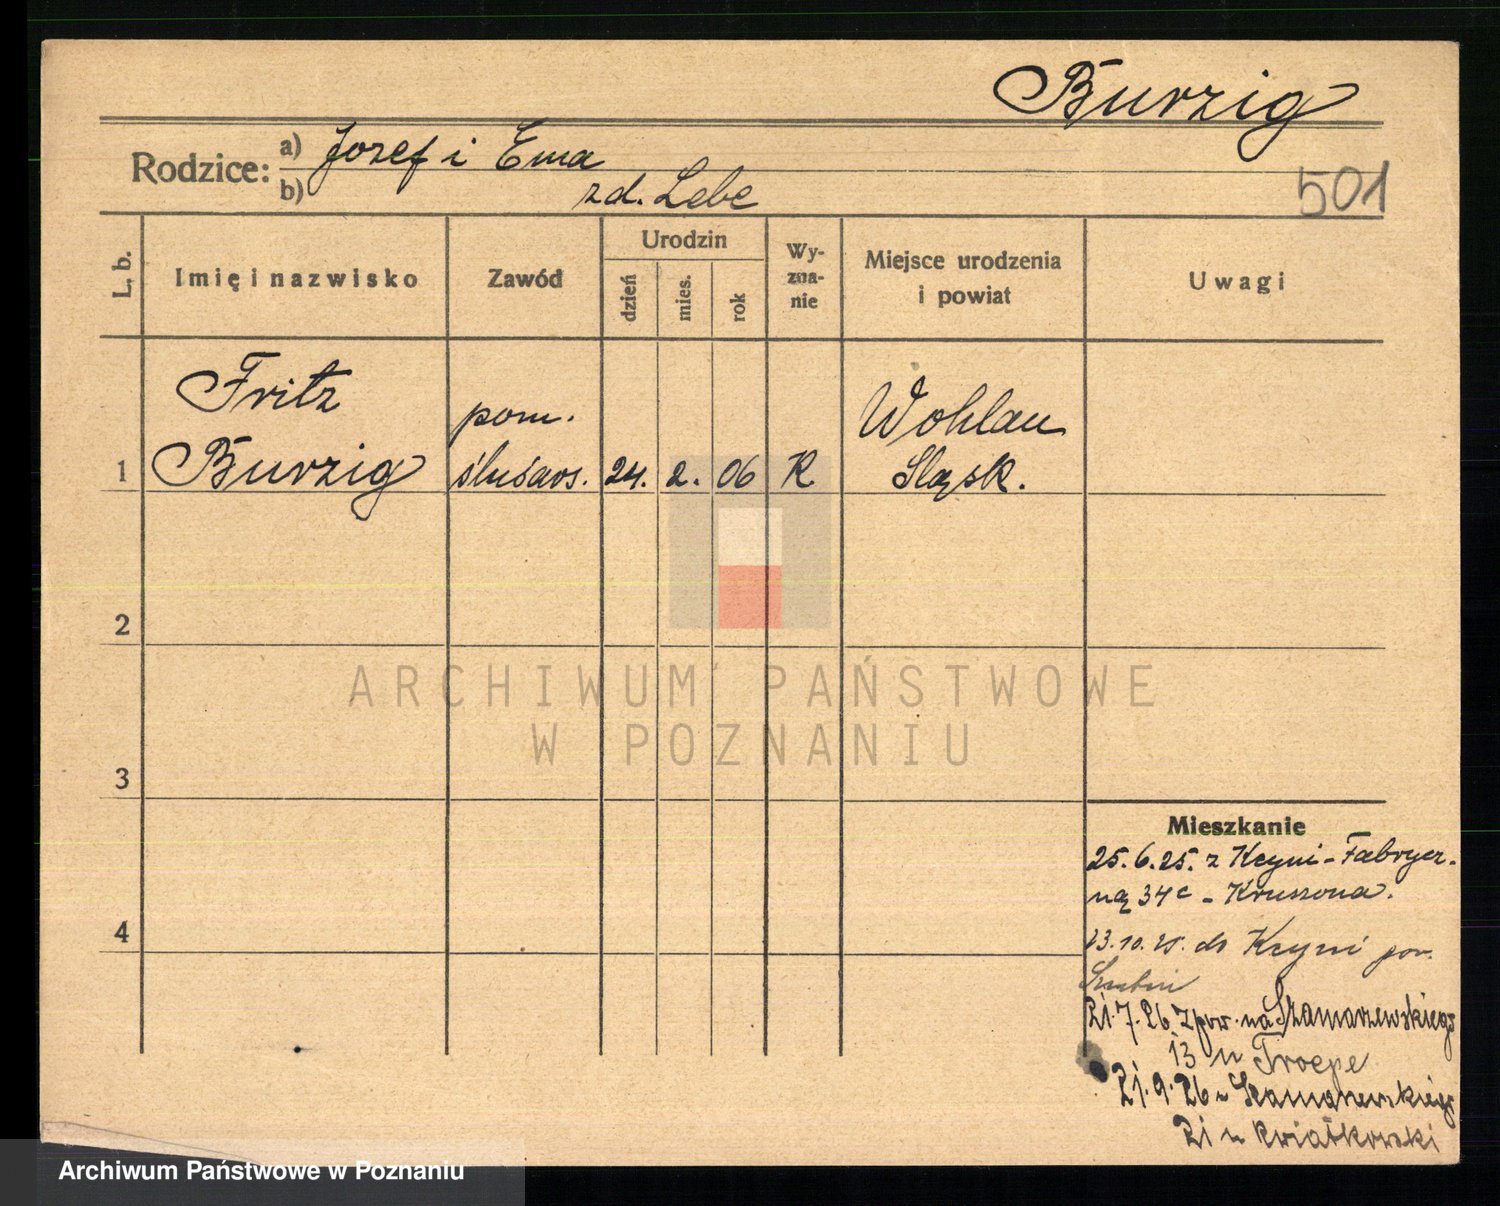 Burzig
Rodzice: a) Jozef i Ema
b) zd. Lebe
501
L. b.
Imię i nazwisko
Zawód
Urodzin
dzień
mies.
rok
Wy-
zna-
nie
Miejsce urodzenia
i powiat
Uwagi
Fritz
Burzig
pom.
ślusars.
1
24. 2. 06
K
Wohlau
Sląsk.
2
3
4
ARCHIWUM PAŃSTWOWE
W POZNANIU
Mieszkanie
25.6.25. z Kcyni - Fabrycz.
ną 34c - Kruszona.
13.10.25. do Kcyni pow.
Szubin
21.7.26 z pow. na Szamarzewskiego
13 u Troepe
21.9.26 Szamarzewskiego
21 u Kwiatkowski
Archiwum Państwowe w Poznaniu